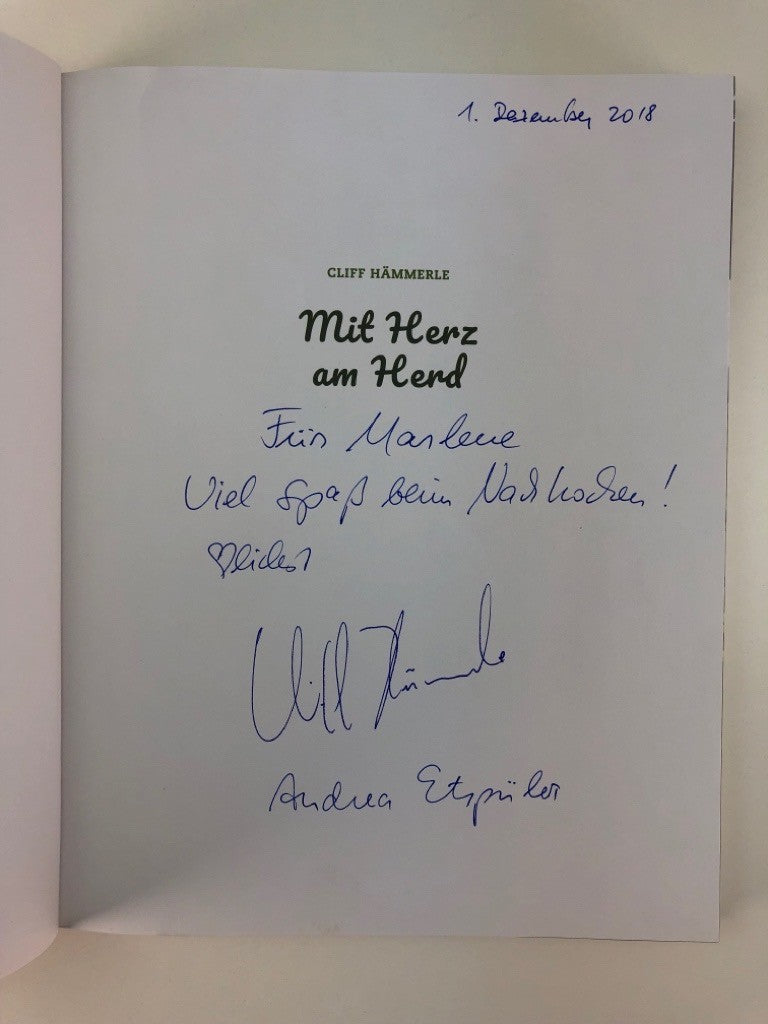 1. Dezember 2018
CLIFF HÄMMERLE
Mit Herz
am Herd
Für Marlene
Viel Spaß beim Nachkochen!
♡lichst
Cliff Hämmerle
Andrea